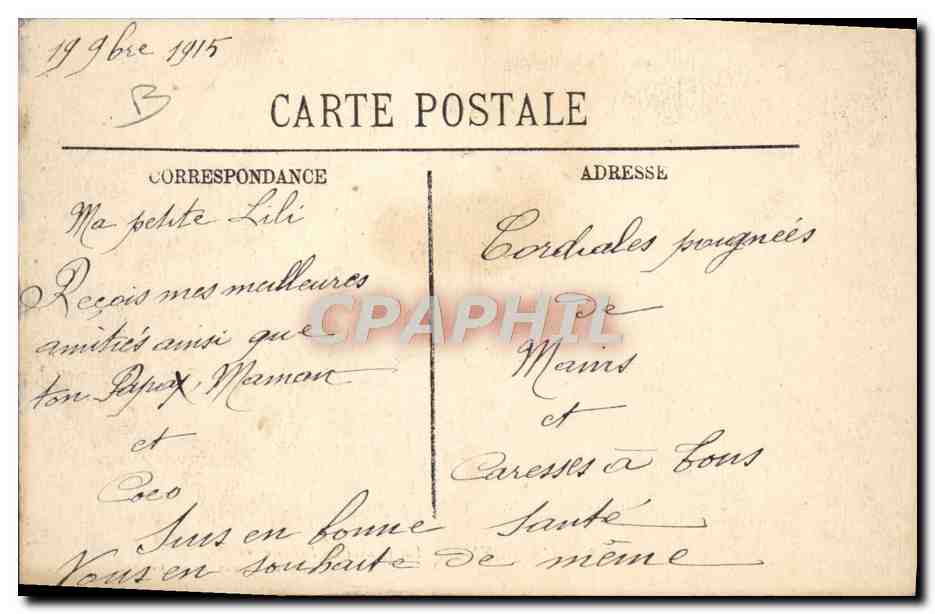 19 9bre 1915
B
CARTE POSTALE
CORRESPONDANCE
Ma petite Lili
Reçois mes meilleures
amitiés ainsi que
ton Papa, Maman
et
Coco
ADRESSE
Cordiales poignées
de
Mains
et
Caresses à tous
Suis en bonne santé
Vous en souhaite de même
CPAPHIL